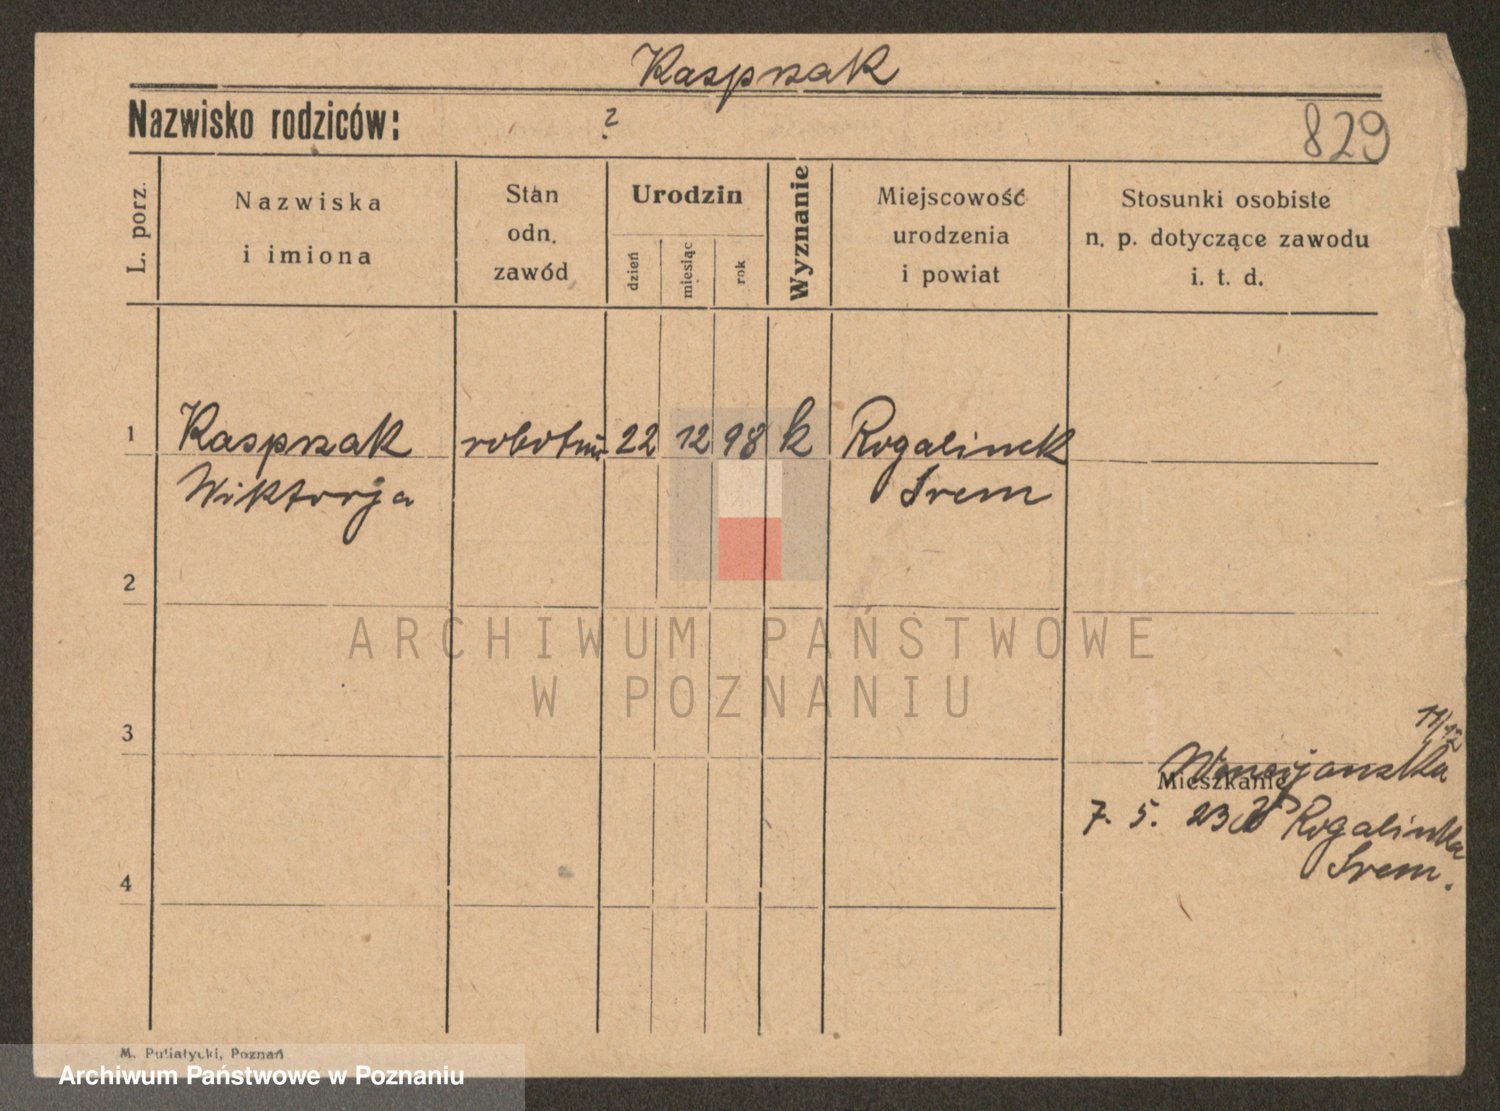 Kasprzak
Nazwisko rodziców: ?
829
L. porz.
Nazwiska
i imiona
Stan
odn.
zawód
Urodzin
dzień
miesiąc
rok
Wyznanie
Miejscowość
urodzenia
i powiat
Stosunki osobiste
n. p. dotyczące zawodu
i. t. d.
1 Kasprzak robotni 22 12 98 k Rogalinek
Wiktorja Śrem
2
ARCHIWUM PAŃSTWOWE
W POZNANIU
3
11/12
Wenecjanska
Mieszkanie
7. 5. 23 Rogalinka
Śrem.
4
M. Putiatycki, Poznań
Archiwum Państwowe w Poznaniu